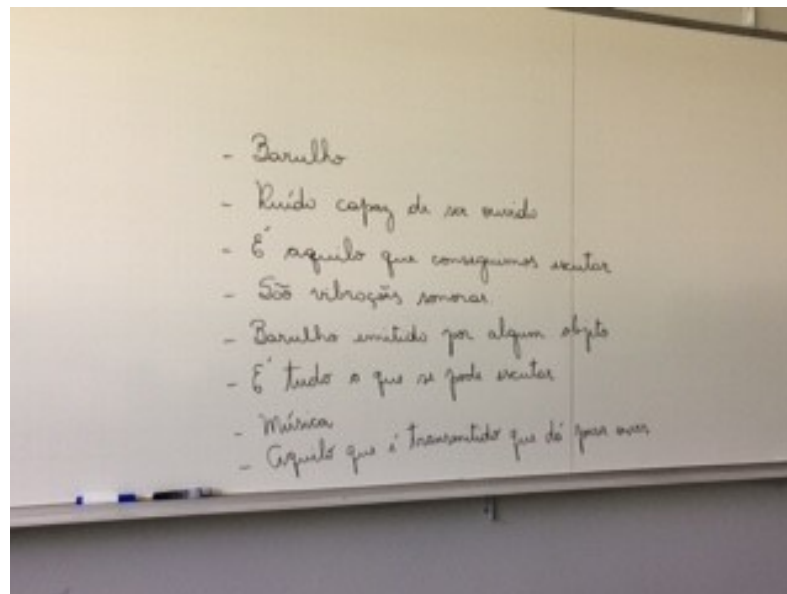 - Barulho
- Ruído capaz de ser ouvido
- É aquilo que conseguimos escutar
- São vibrações sonoras
- Barulho emitido por algum objeto
- É tudo o que se pode escutar
- Música
- Aquilo que é transmitido que dá para ouvir